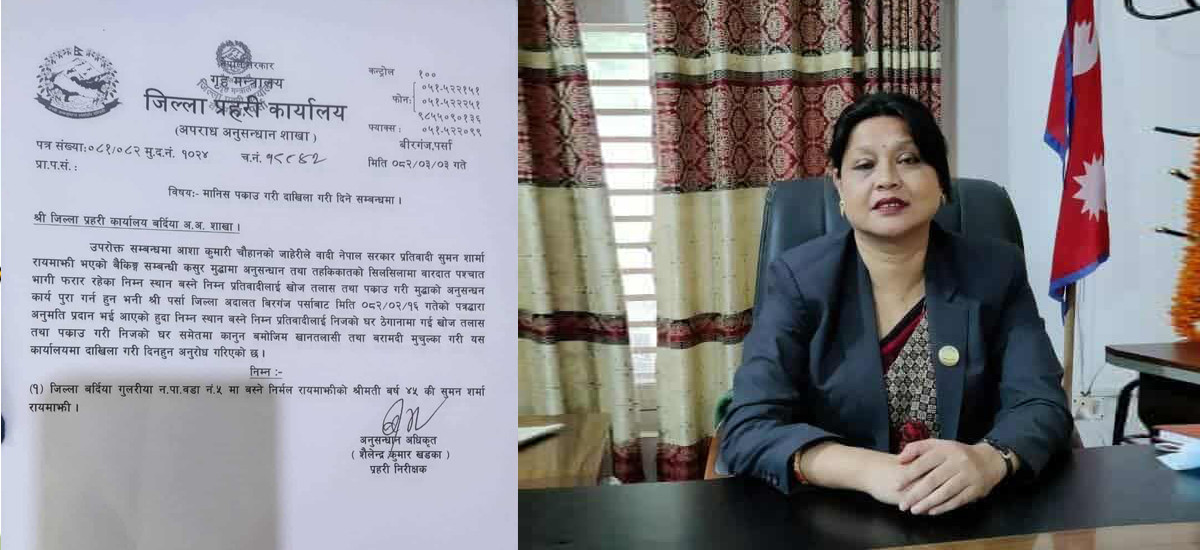 नेपाल सरकार
गृह मन्त्रालय
जिल्ला प्रहरी कार्यालय
(अपराध अनुसन्धान शाखा)
कन्ट्रोल १००
०५१-५२२१५१
फोन: ०५१-५२२२५१
९८५५०९०१३६
फ्याक्स : ०५१-५२२०९९
बीरगंज,पर्सा
पत्र संख्या:०८१/०८२ मु.द.नं. १०२४ च.नं.
मिति ०८२/०३/०३ गते
प्रा.प.सं. :
विषय:- मानिस पकाउ गरी दाखिला गरी दिने सम्बन्धमा ।
श्री जिल्ला प्रहरी कार्यालय बर्दिया अ.अ. शाखा ।
उपरोक्त सम्बन्धमा आशा कुमारी चौहानको जाहेरीले वादी नेपाल सरकार प्रतिवादी सुमन शार्मा
रायमाझी भएको बैकिङ्ग सम्बन्धी कसुर मुद्दामा अनुसन्धान तथा तहकिकातको सिलसिलामा बारदात पश्चात
भागी फरार रहेका निम्न स्थान बस्ने निम्न प्रतिवादीलाई खोज तलास तथा पकाउ गरी मुद्धाको अनुसन्धन
कार्य पुरा गर्न हुन भनी श्री पर्सा जिल्ला अदालत बिरगंज पर्साबाट मिति ०८२/०२/१६ गतेको पत्रद्वारा
अनुमति प्रदान भई आएको हुदा निम्न स्थान बस्ने निम्न प्रतिवादीलाई निजको घर ठेगानामा गई खोज तलास
तथा पकाउ गरी निजको घर समेतमा कानुन बमोजिम खानतलासी तथा बरामदी मुचुल्का गरी यस
कार्यालयमा दाखिला गरी दिनहुन अनुरोध गरिएको छ ।
निम्न :-
(१) जिल्ला बर्दिया गुलरीया न.पा.वडा नं.५ मा बस्ने निर्मल रायमाझीको श्रीमती बर्ष ४५ की सुमन शर्मा
रायमाझी ।
अनुसन्धान अधिकृत
( शैलेन्द्र कुमार खडका )
प्रहरी निरीक्षक